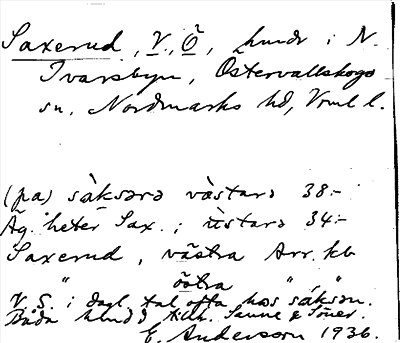 Saxerud, V., Ö, hundr i N.
Ivarsbyn, Östervallskogs
sn, Nordmarks hd, Vrml l.
(pa) sàksərə vàstarə 38:-
Äg. heter Sax.; ùstarə 34:-
Saxerud, västra Arr. kb
" östra " "
V. S. i dagl. tal ofta hos sáksən.
Båda
E. Andersson 1936.